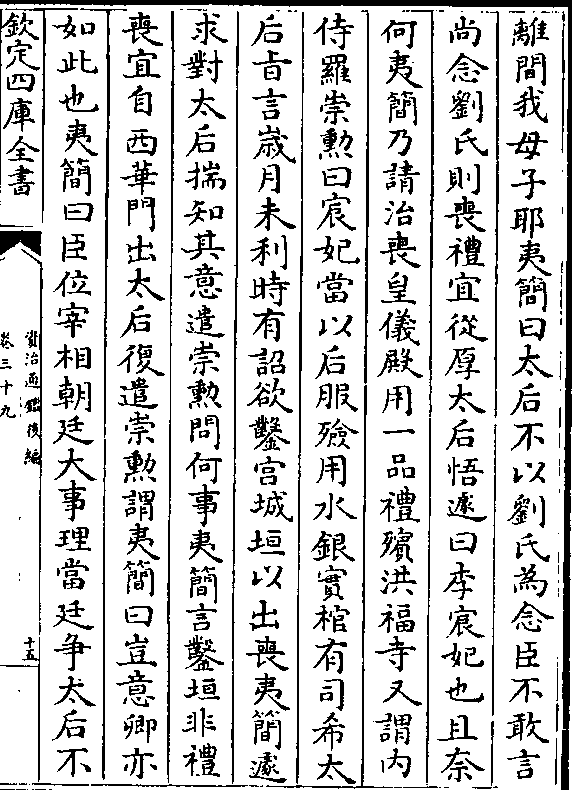 離間我母子耶夷簡曰太后不以劉氏為念臣不敢言
尚念劉氏則喪禮宜從厚太后悟遽曰李宸妃也且奈
何夷簡乃請治喪皇儀殿用一品禮殯洪福寺又謂內
侍羅崇勲曰宸妃當以后服殮用水銀實棺有司希太
后旨言歳月未利時有詔欲鑿宫城垣以出喪夷簡遽
求對太后揣知其意遣崇勲問何事夷簡言鑿垣非禮
喪宜自西華門出太后復遣崇勲謂夷簡曰豈意卿亦
如此也夷簡曰臣位宰相朝廷大事理當廷争太后不
欽定四庫全書
資治通鑑後編
卷三十九
十五